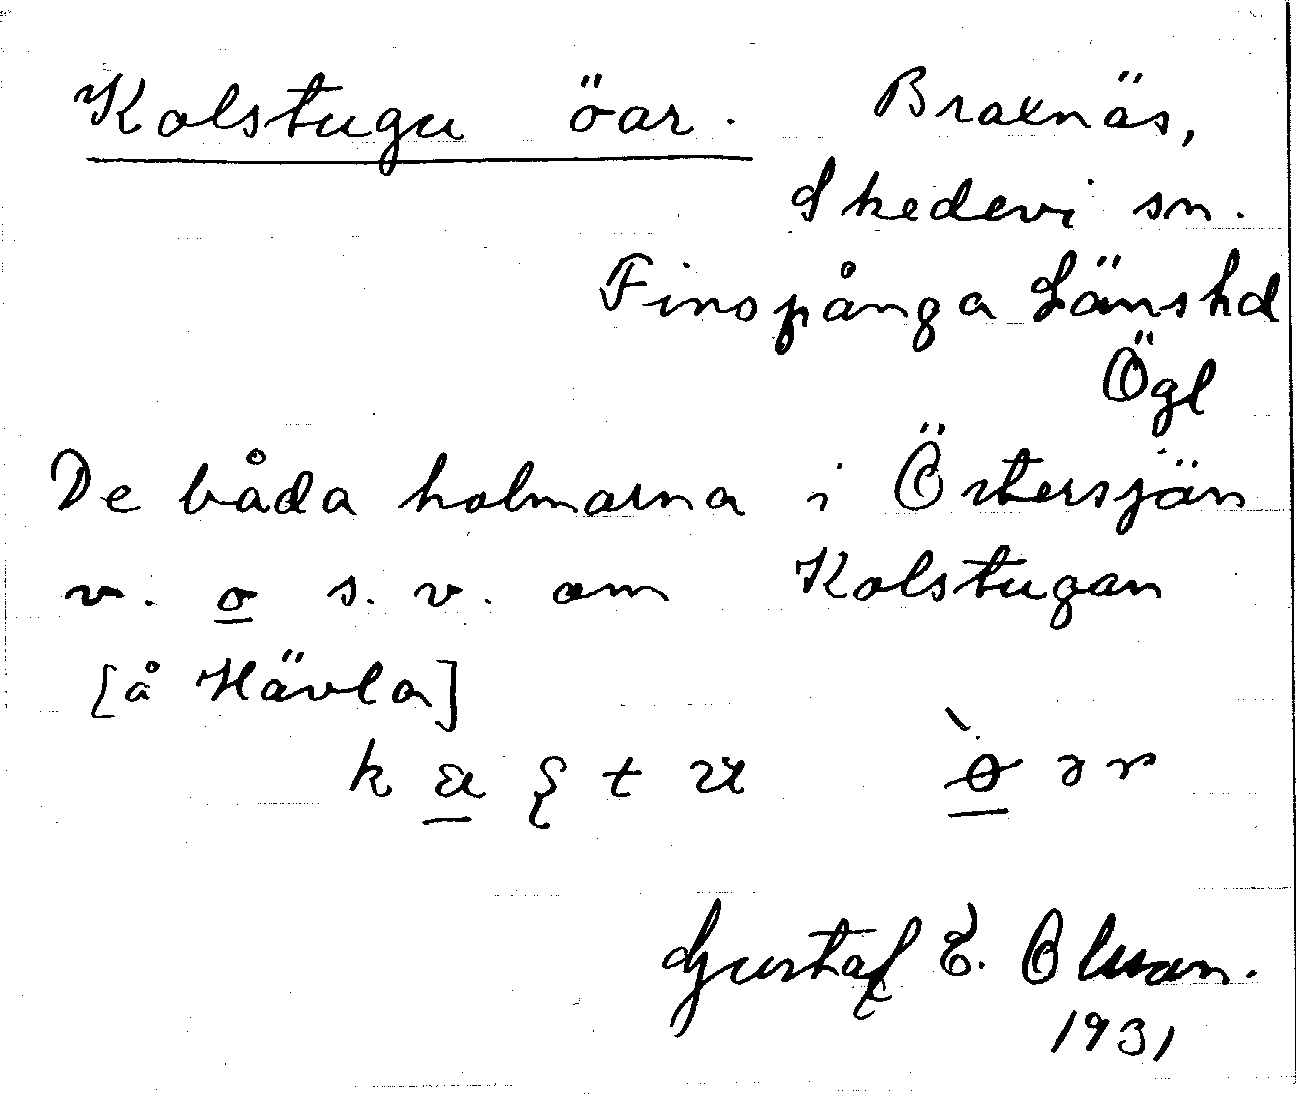 Kolstugu öar. Braxnäs,
Skedevi sn.
Finspånga Länshd
Ögl
De båda holmarna i Östersjön
v. o s. v. om Kolstugan
[å Hävla]
Gustaf E. Olsson.
1931